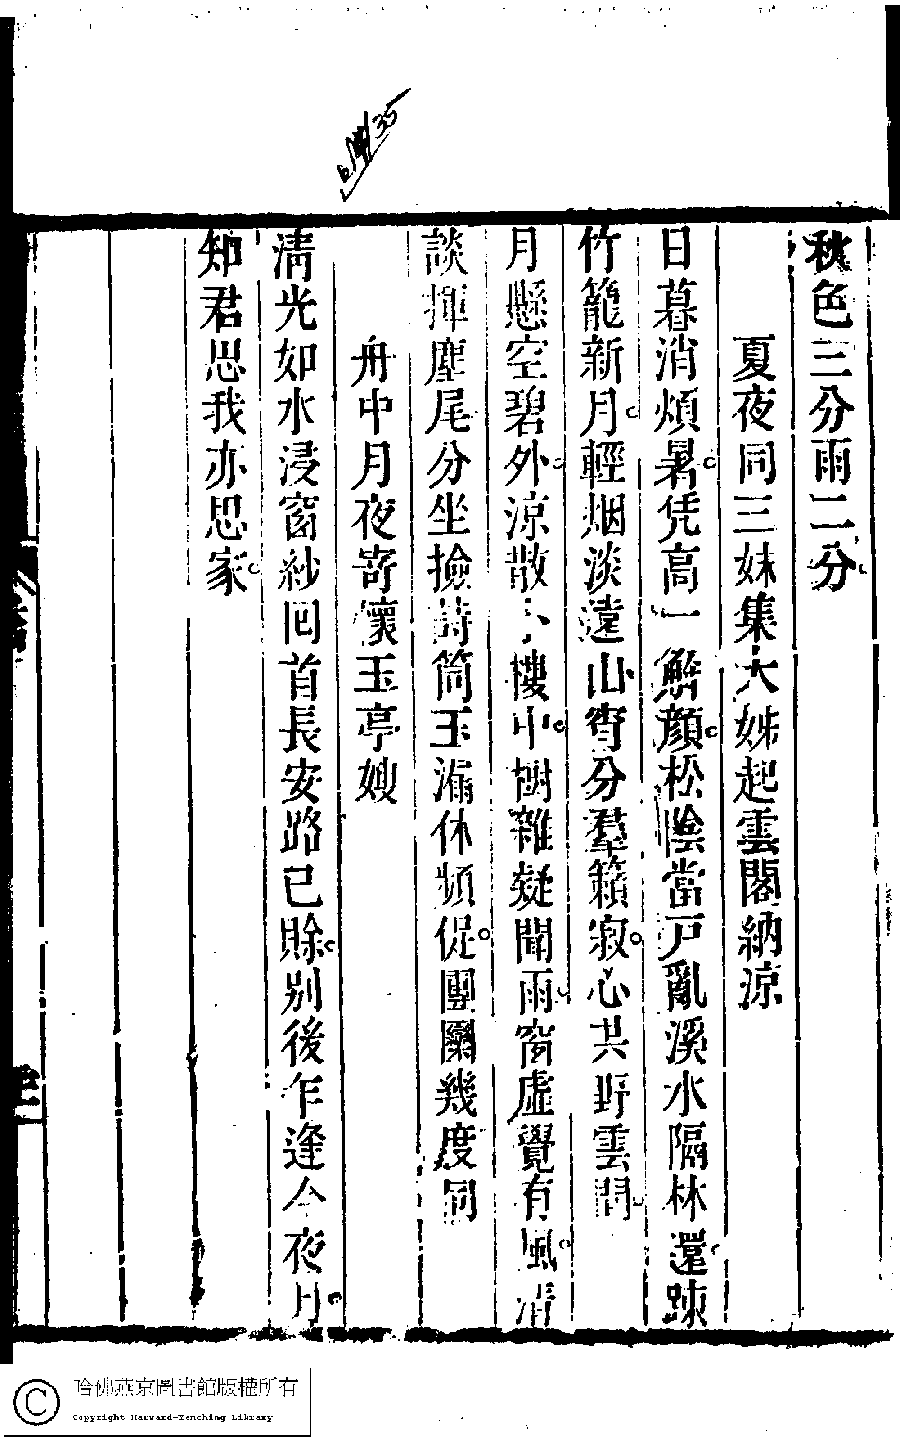 秋色三分雨二分
夏夜同三妹集大姊起雲閣納涼
日暮消煩暑凭高一解顏松陰當戸亂溪水隔林還踈
竹籠新月輕烟淡遠山宵分羣籟寂心共野雲間
月懸空碧外涼散小樓中樹雜疑聞雨窗虛覺有風清
談揮麈尾分坐撿詩筒玉漏休頻促團圞幾度同
舟中月夜寄懷玉亭嫂
清光如水浸窗紗囘首長安路已賖別後乍逢今夜月
知君思我亦思家
哈佛燕京圖書館版權所有
Copyright Harvard-Yenching Library